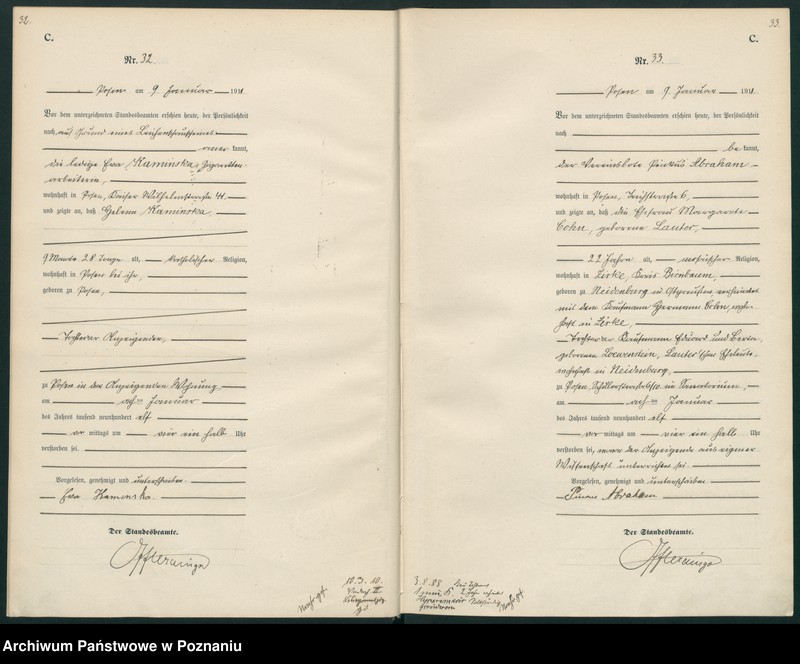 32.
C.
Nr. 32
Posen am 9 Januar 1911.
Vor dem unterzeichneten Standesbeamten erschien heute, der Persönlichkeit
nach auf Grund eines Leichenschauscheines
aner kannt,
die ledige Eva Kaminska, Zigaretten-
arbeiterin,
wohnhaft in Posen, Kaiser Wilhelmstraße 41
und zeigte an, daß Helena Kaminska,
9 Monate 28 Tage alt, katholischer Religion,
wohnhaft in Posen bei ihr,
geboren zu Posen,
Tochter der Anzeigenden,
zu Posen in der Anzeigenden Wohnung
am acht Januar
des Jahres tausend neunhundert elf
vor mittags um vier ein halb Uhr
verstorben sei.
Vorgelesen, genehmigt und unterschrieben
Eva Kaminska
Der Standesbeamte.
10.3.10.
33.
C.
Nr. 33.
Posen am 9. Januar 1911.
Vor dem unterzeichneten Standesbeamten erschien heute, der Persönlichkeit
nach
be kannt,
der Vereinsbote Pinkus Abraham
wohnhaft in Posen, Teichstraße 6,
und zeigte an, daß die Ehefrau Margarete
Cohn, geborene Lauter,
22 Jahre alt, mosaischer Religion,
wohnhaft in Zirke, Kreis Birnbaum,
geboren zu Neidenburg in Ostpreußen, verheiratet
mit dem Kaufmann Hermann Cohn, wohn-
haft in Zirke,
Tochter der Kaufmann Eduard und Berta,
geborenen Loewenstein, Lauter'schen Eheleute,
wohnhaft in Neidenburg,
zu Posen, im Sanatorium,
am acht Januar
des Jahres tausend neunhundert elf
vor mittags um vier ein halb Uhr
verstorben sei, wovon der Anzeigende aus eigener
Wissenschaft unterrichtet sei.
Vorgelesen, genehmigt und unterschrieben
Pinkus Abraham
Der Standesbeamte.
Archiwum Państwowe w Poznaniu